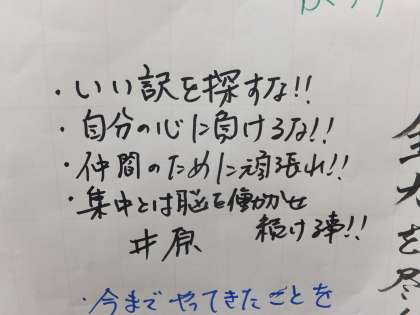 ・いい訳を探すな!!
・自分の心に負けるな!!
・仲間のために頑張れ!!
・集中とは脳を働かせ
続ける事!!
井原
・今までやってきたことを
全力を尽